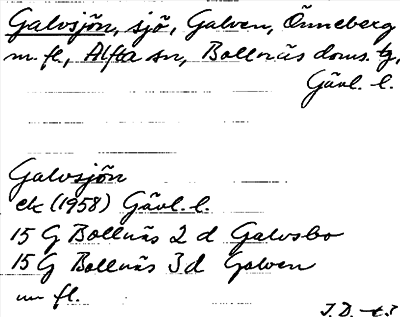 Galvsjön, sjö, Galven, Önneberg
m. fl., Alfta sn, Bollnäs doms. tg,
Gävl. l.
Galvsjön
ek (1958) Gävl. l.
15 G Bollnäs 2 d Galvsbo
15 G Bollnäs 3 d Galven
m fl.
J. D. -t3